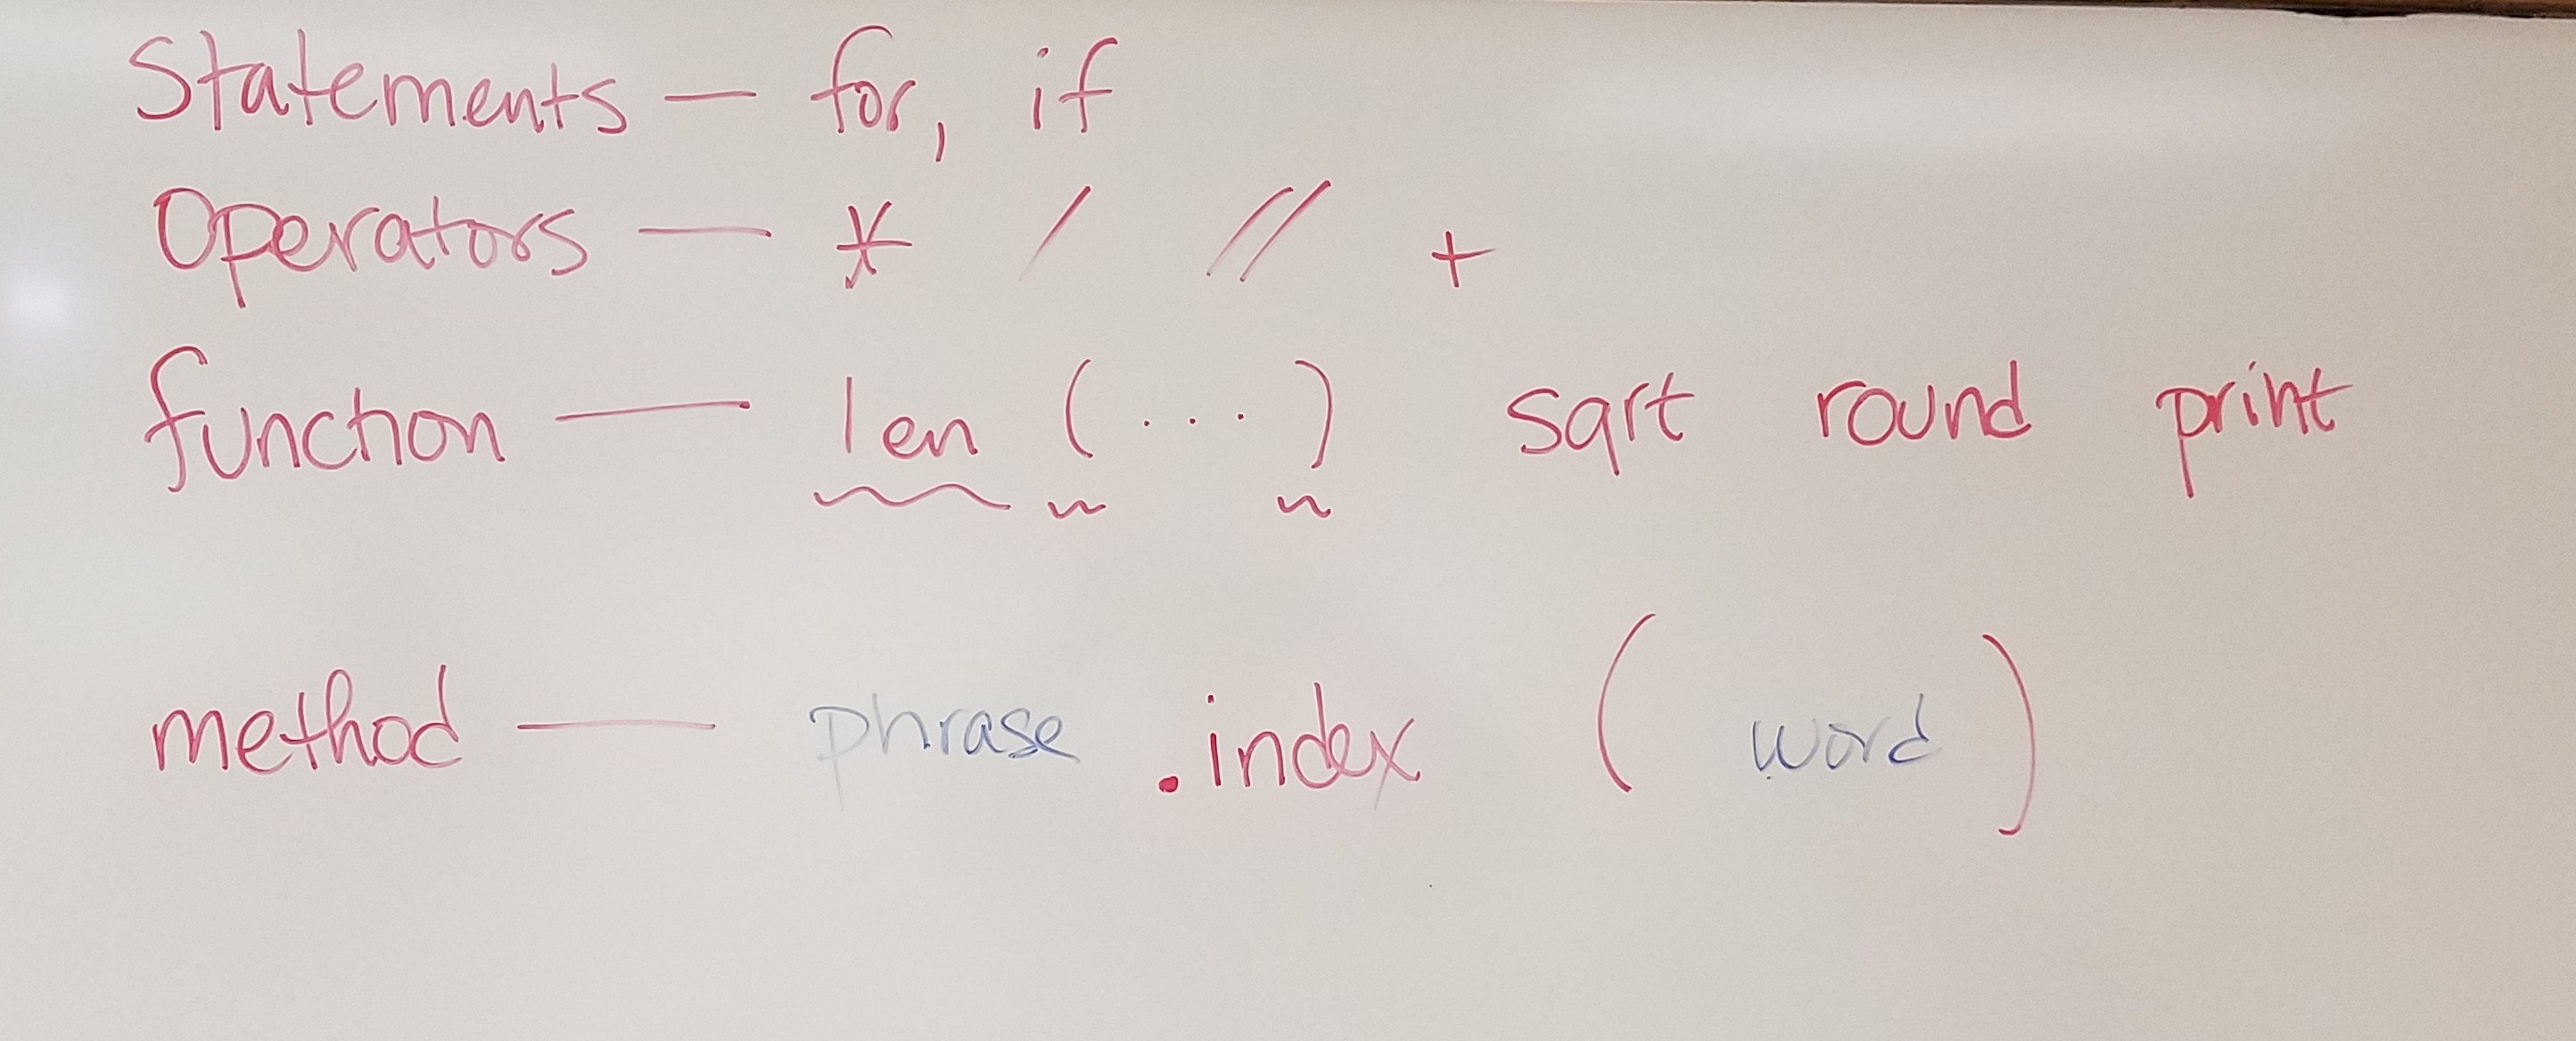 Statements — for, if
Operators — * / // +
function — len (...) sqrt round print
method — phrase .index ( word )